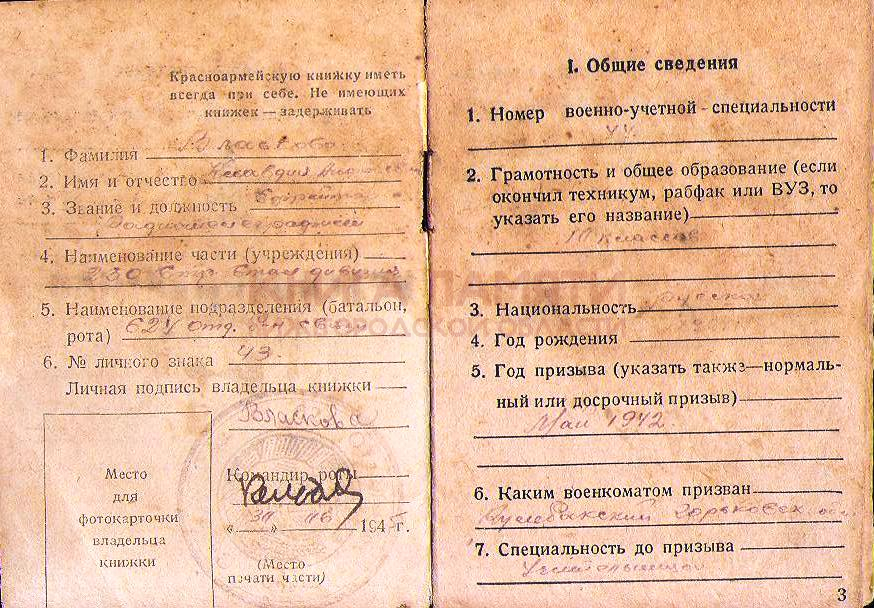 Красноармейскую книжку иметь
всегда при себе. Не имеющих
книжек — задерживать
1. Фамилия Власкова
2. Имя и отчество Клавдия
3. Звание и должность Ефрейтор
4. Наименование части (учреждения)
230 Стр. Стал дивизия
5. Наименование подразделения (батальон,
рота) 624 отд. б-н связи
6. № личного знака 43.
Личная подпись владельца книжки
Власкова
Командир роты
« 30 » 194 г.
(Место
печати части)
Место
для
фотокарточки
владельца
книжки
I. Общие сведения
1. Номер военно-учетной специальности
2. Грамотность и общее образование (если
окончил техникум, рабфак или ВУЗ, то
указать его название)
10 классов
3. Национальность русская
4. Год рождения
5. Год призыва (указать также—нормаль-
ный или досрочный призыв)
Май 1942.
6. Каким военкоматом призван
Кулебакский Горьковск. обл
7. Специальность до призыва
Учительница
3